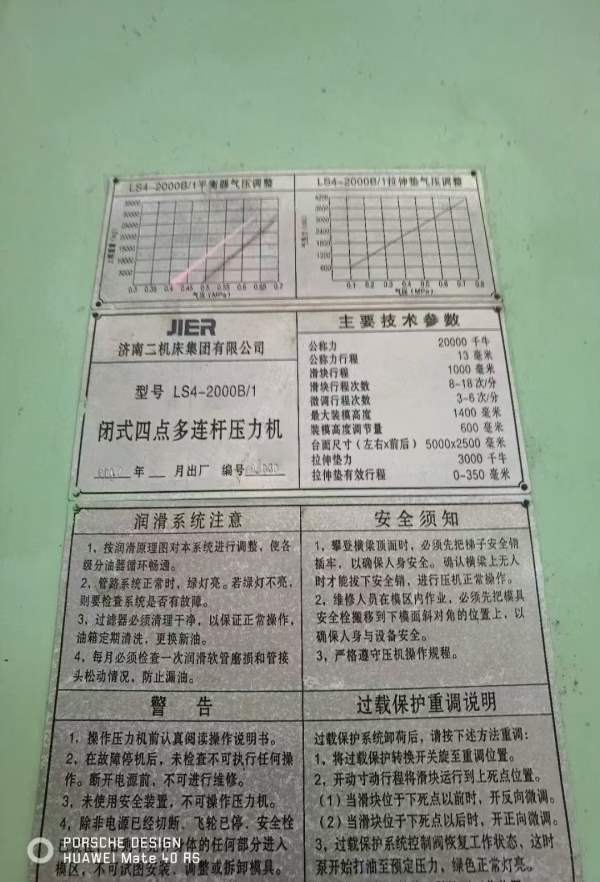 LS4-2000B/1平衡器气压调整
LS4-2000B/1拉伸垫气压调整
0.3 0.35 0.4 0.45 0.5 0.55 0.6 0.65 0.7
气压(MPa)
0.1 0.2 0.3 0.4 0.5 0.6 0.7 0.8
气压(MPa)
JIER
济南二机床集团有限公司
型号 LS4-2000B/1
闭式四点多连杆压力机
年 月出厂 编号
主要技术参数
公称力 20000 千牛
公称力行程 13 毫米
滑块行程 1000 毫米
滑块行程次数 8-18 次/分
微调行程次数 3-6 次/分
最大装模高度 1400 毫米
装模高度调节量 600 毫米
台面尺寸(左右x前后) 5000x2500 毫米
拉伸垫力 3000 千牛
拉伸垫有效行程 0-350 毫米
润滑系统注意
1、按润滑原理图对本系统进行调整，使各
级分油器循环畅通。
2、管路系统正常时，绿灯亮。若绿灯不亮，
则要检查系统是否有故障。
3、过滤器必须清理干净，以保证正常操作，
油箱定期清洗，更换新油。
4、每月必须检查一次润滑软管磨损和管接
头松动情况，防止漏油。
安全须知
1、攀登横梁顶面时，必须先把梯子安全销
插牢，以确保人身安全。 确认横梁上无人
时才能拔下安全销，进行压机正常操作。
2、维修人员在模区内作业，必须先把模具
安全栓搬移到下模面斜对角的位置上，以
确保人身与设备安全。
3、严格遵守压机操作规程。
警告
1、操作压力机前认真阅读操作说明书。
2、在故障停机后，未检查不可执行任何操
作。断开电源前，不可进行维修。
3、未使用安全装置，不可操作压力机。
4、除非电源已经切断、飞轮已停、安全栓
身体的任何部分进入
模区，不可试图安装、调整或拆卸模具。
过载保护重调说明
过载保护系统卸荷后，请按下述方法重调：
1、将过载保护转换开关旋至重调位置。
2、开动寸动行程将滑块运行到上死点位置。
(1)当滑块位于下死点以前时，开反向微调。
(2)当滑块位于下死点以后时，开正向微调。
3、过载保护系统控制阀恢复工作状态，这时
泵开始打油至预定压力，绿色正常灯亮。
PORSCHE DESIGN
HUAWEI Mate 40 RS